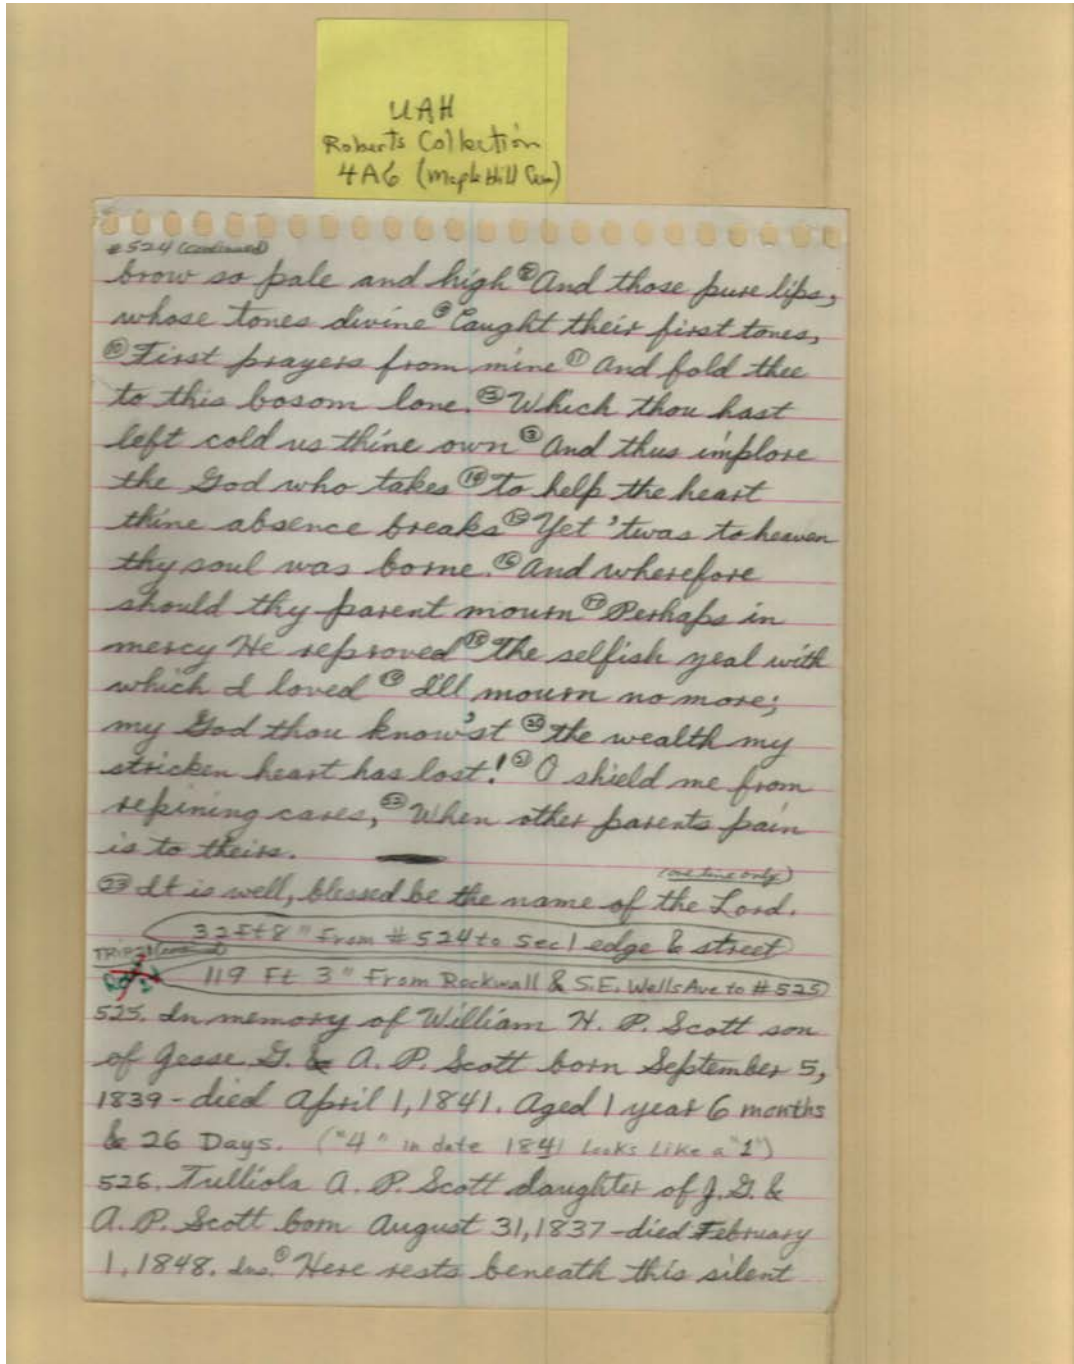 UAH
Roberts Collection
4A6 (Maple Hill Cem)
#524 (continued)
brow so pale and high ⑧ And those pure lips,
whose tones divine ⑨ Caught their first tones,
⑩ First prayers from mine ⑪ And fold thee
to this bosom lone. ⑫ Which thou hast
left cold us thine own ⑬ And thus implore
the God who takes ⑭ To help the heart
thine absence breaks ⑮ Yet 'twas to heaven
thy soul was borne. ⑯ And wherefore
should thy parent mourn ⑰ Perhaps in
mercy He reproved ⑱ The selfish zeal with
which I loved ⑲ I'll mourn no more;
my God thou know'st ⑳ the wealth my
stricken heart has lost! ㉑ O shield me from
repining cares, ㉒ When other parents pain
is to theirs.
(one line only)
㉓ It is well, blessed be the name of the Lord.
32 Ft 8" From #524 to Sec 1 edge & street
TRIP
119 Ft 3" From Rockwall & S.E. Wells Ave to #525
525. In memory of William H. P. Scott son
of Jesse G. & A. P. Scott born September 5,
1839 - died April 1, 1841. Aged 1 year 6 months
& 26 Days. ("4" in date 1841 Looks Like a "1")
526. Tulliola A. P. Scott daughter of J. G. &
A. P. Scott born August 31, 1837 - died February
1, 1848. Ins. ① Here rests beneath this silent